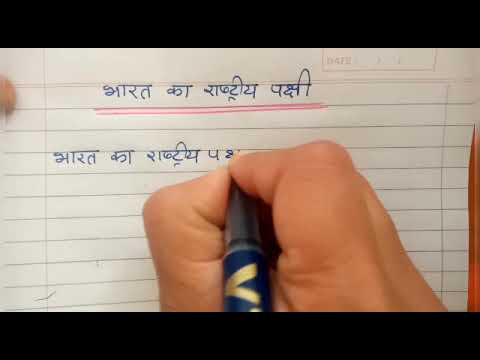 DATE : / /
भारत का राष्ट्रीय पक्षी
भारत का राष्ट्रीय प